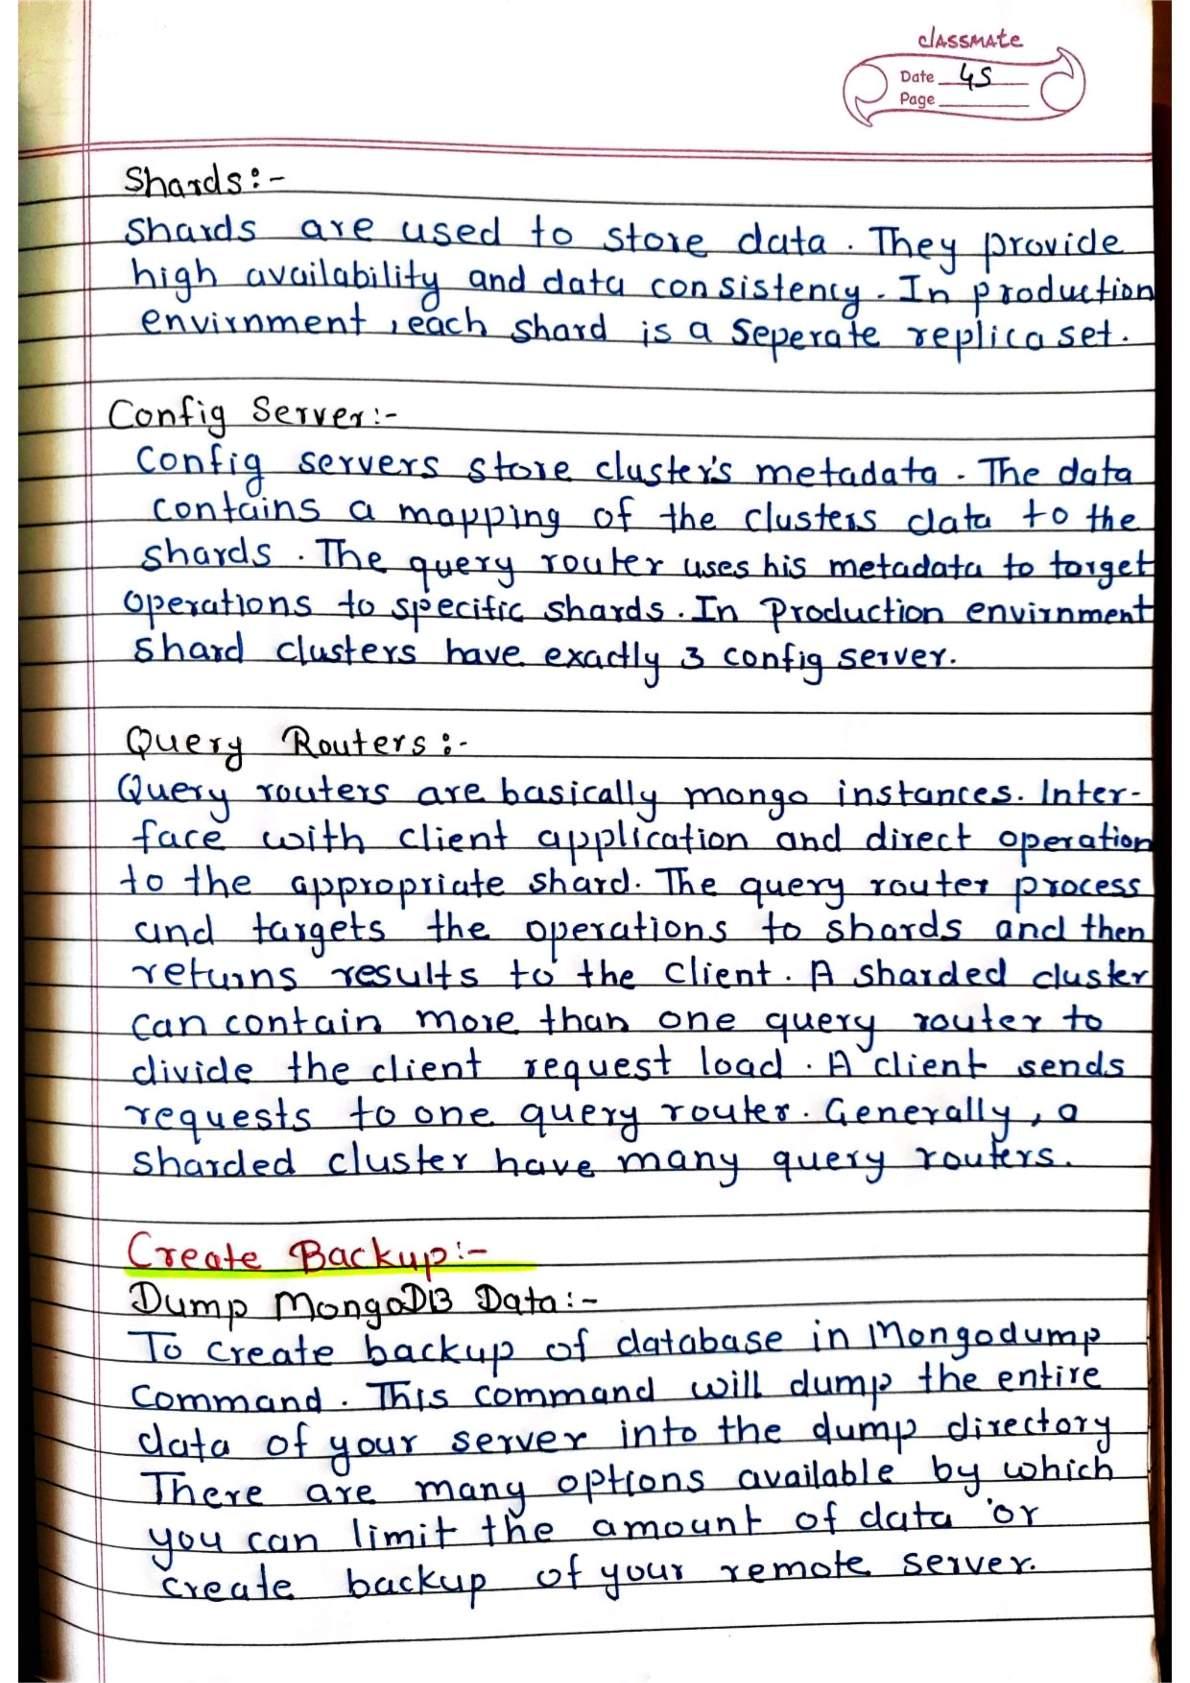 classmate
Date 45
Page
Shards:-
Shards are used to store data. They provide
high availability and data consistency. In production
envirnment, each shard is a seperate replica set.
Config Server:-
Config servers store cluster's metadata. The data
contains a mapping of the clusters data to the
shards. The query router uses his metadata to target
operations to specific shards. In Production envirnment
Shard clusters have exactly 3 config server.
Query Routers:-
Query routers are basically mongo instances. Inter-
face with client application and direct operation
to the appropriate shard. The query router process
and targets the operations to shards and then
returns results to the client. A sharded cluster
can contain more than one query router to
divide the client request load. A client sends
requests to one query router. Generally, a
sharded cluster have many query routers.
Create Backup:-
Dump MongoDB Data:-
To create backup of database in Mongodump
command. This command will dump the entire
data of your server into the dump directory
There are many options available by which
you can limit the amount of data or
create backup of your remote server.